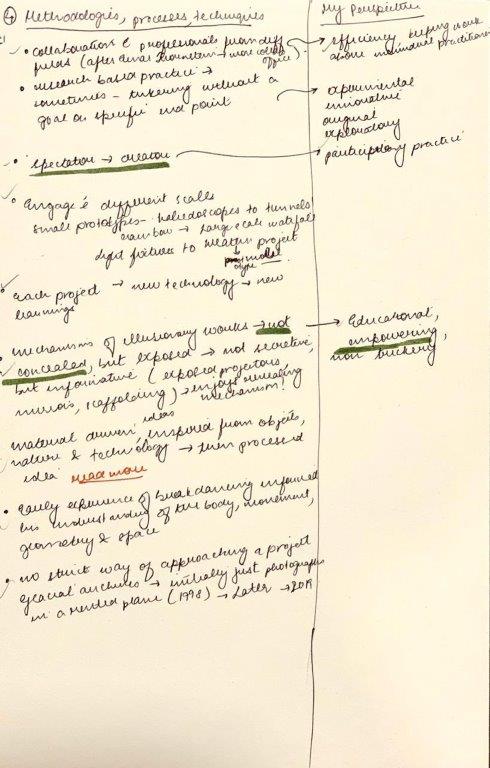 ④ Methodologies, processes, techniques
My Perspective
• collaborations & professionals from diff
fields (after
office)
efficiency
individual practitioner
• research based practice →
sometimes - tinkering without a
goal or specific end point
experimental
innovative
original
exploratory
• spectator → creator
participatory practice
• Engage different scales
small prototypes - kaleidoscopes to tunnels
rainbow → large scale waterfalls
light fixtures to weather project
• Each project → new technology → new
learnings
• mechanisms of illusionary works → not
concealed, but exposed → not secretive,
but informative (exposed projectors,
mirrors, scaffolding) → enjoys revealing
mechanism!
Educational,
empowering,
non tricking
material driven ideas
nature & technology, inspired from objects,
→ turn processed
idea read more
• early experience of breakdancing informed
his understanding of the body, movement,
geometry & space
• no strict way of approaching a project
glacial archives → initially just photographs
in a rented plane (1998) → Later → 2019